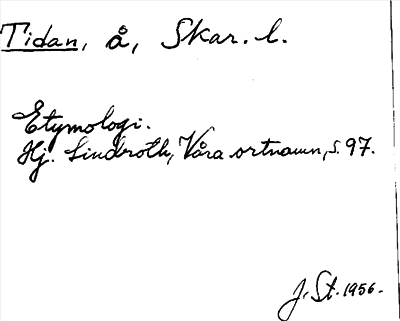 Tidan, å, Skar. l.
Etymologi.
Hj. Lindroth, Våra ortnamn, s. 97.
J. St. 1956.